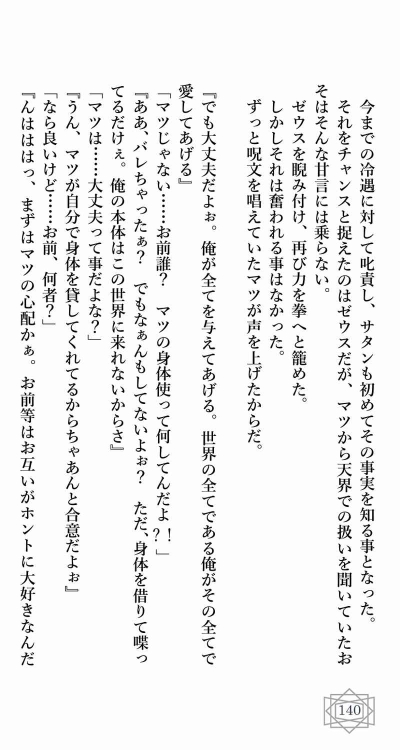 今までの冷遇に対して叱責し、サタンも初めてその事実を知る事となった。
それをチャンスと捉えたのはゼウスだが、マツから天界での扱いを聞いていたお
そはそんな甘言には乗らない。
ゼウスを睨み付け、再び力を拳へと籠めた。
しかしそれは奮われる事はなかった。
ずっと呪文を唱えていたマツが声を上げたからだ。
『でも大丈夫だよぉ。俺が全てを与えてあげる。世界の全てである俺がその全てで
愛してあげる』
「マツじゃない……お前誰？　マツの身体使って何してんだよ？！」
『ああ、バレちゃったぁ？　でもなぁんもしてないよぉ？　ただ、身体を借りて喋っ
てるだけぇ。俺の本体はこの世界に来れないからさ』
「マツは……大丈夫って事だよな？」
『うん、マツが自分で身体を貸してくれてるからちゃあんと合意だよぉ』
「なら良いけど……お前、何者？」
『んはははっ、まずはマツの心配かぁ。お前等はお互いがホントに大好きなんだ
140